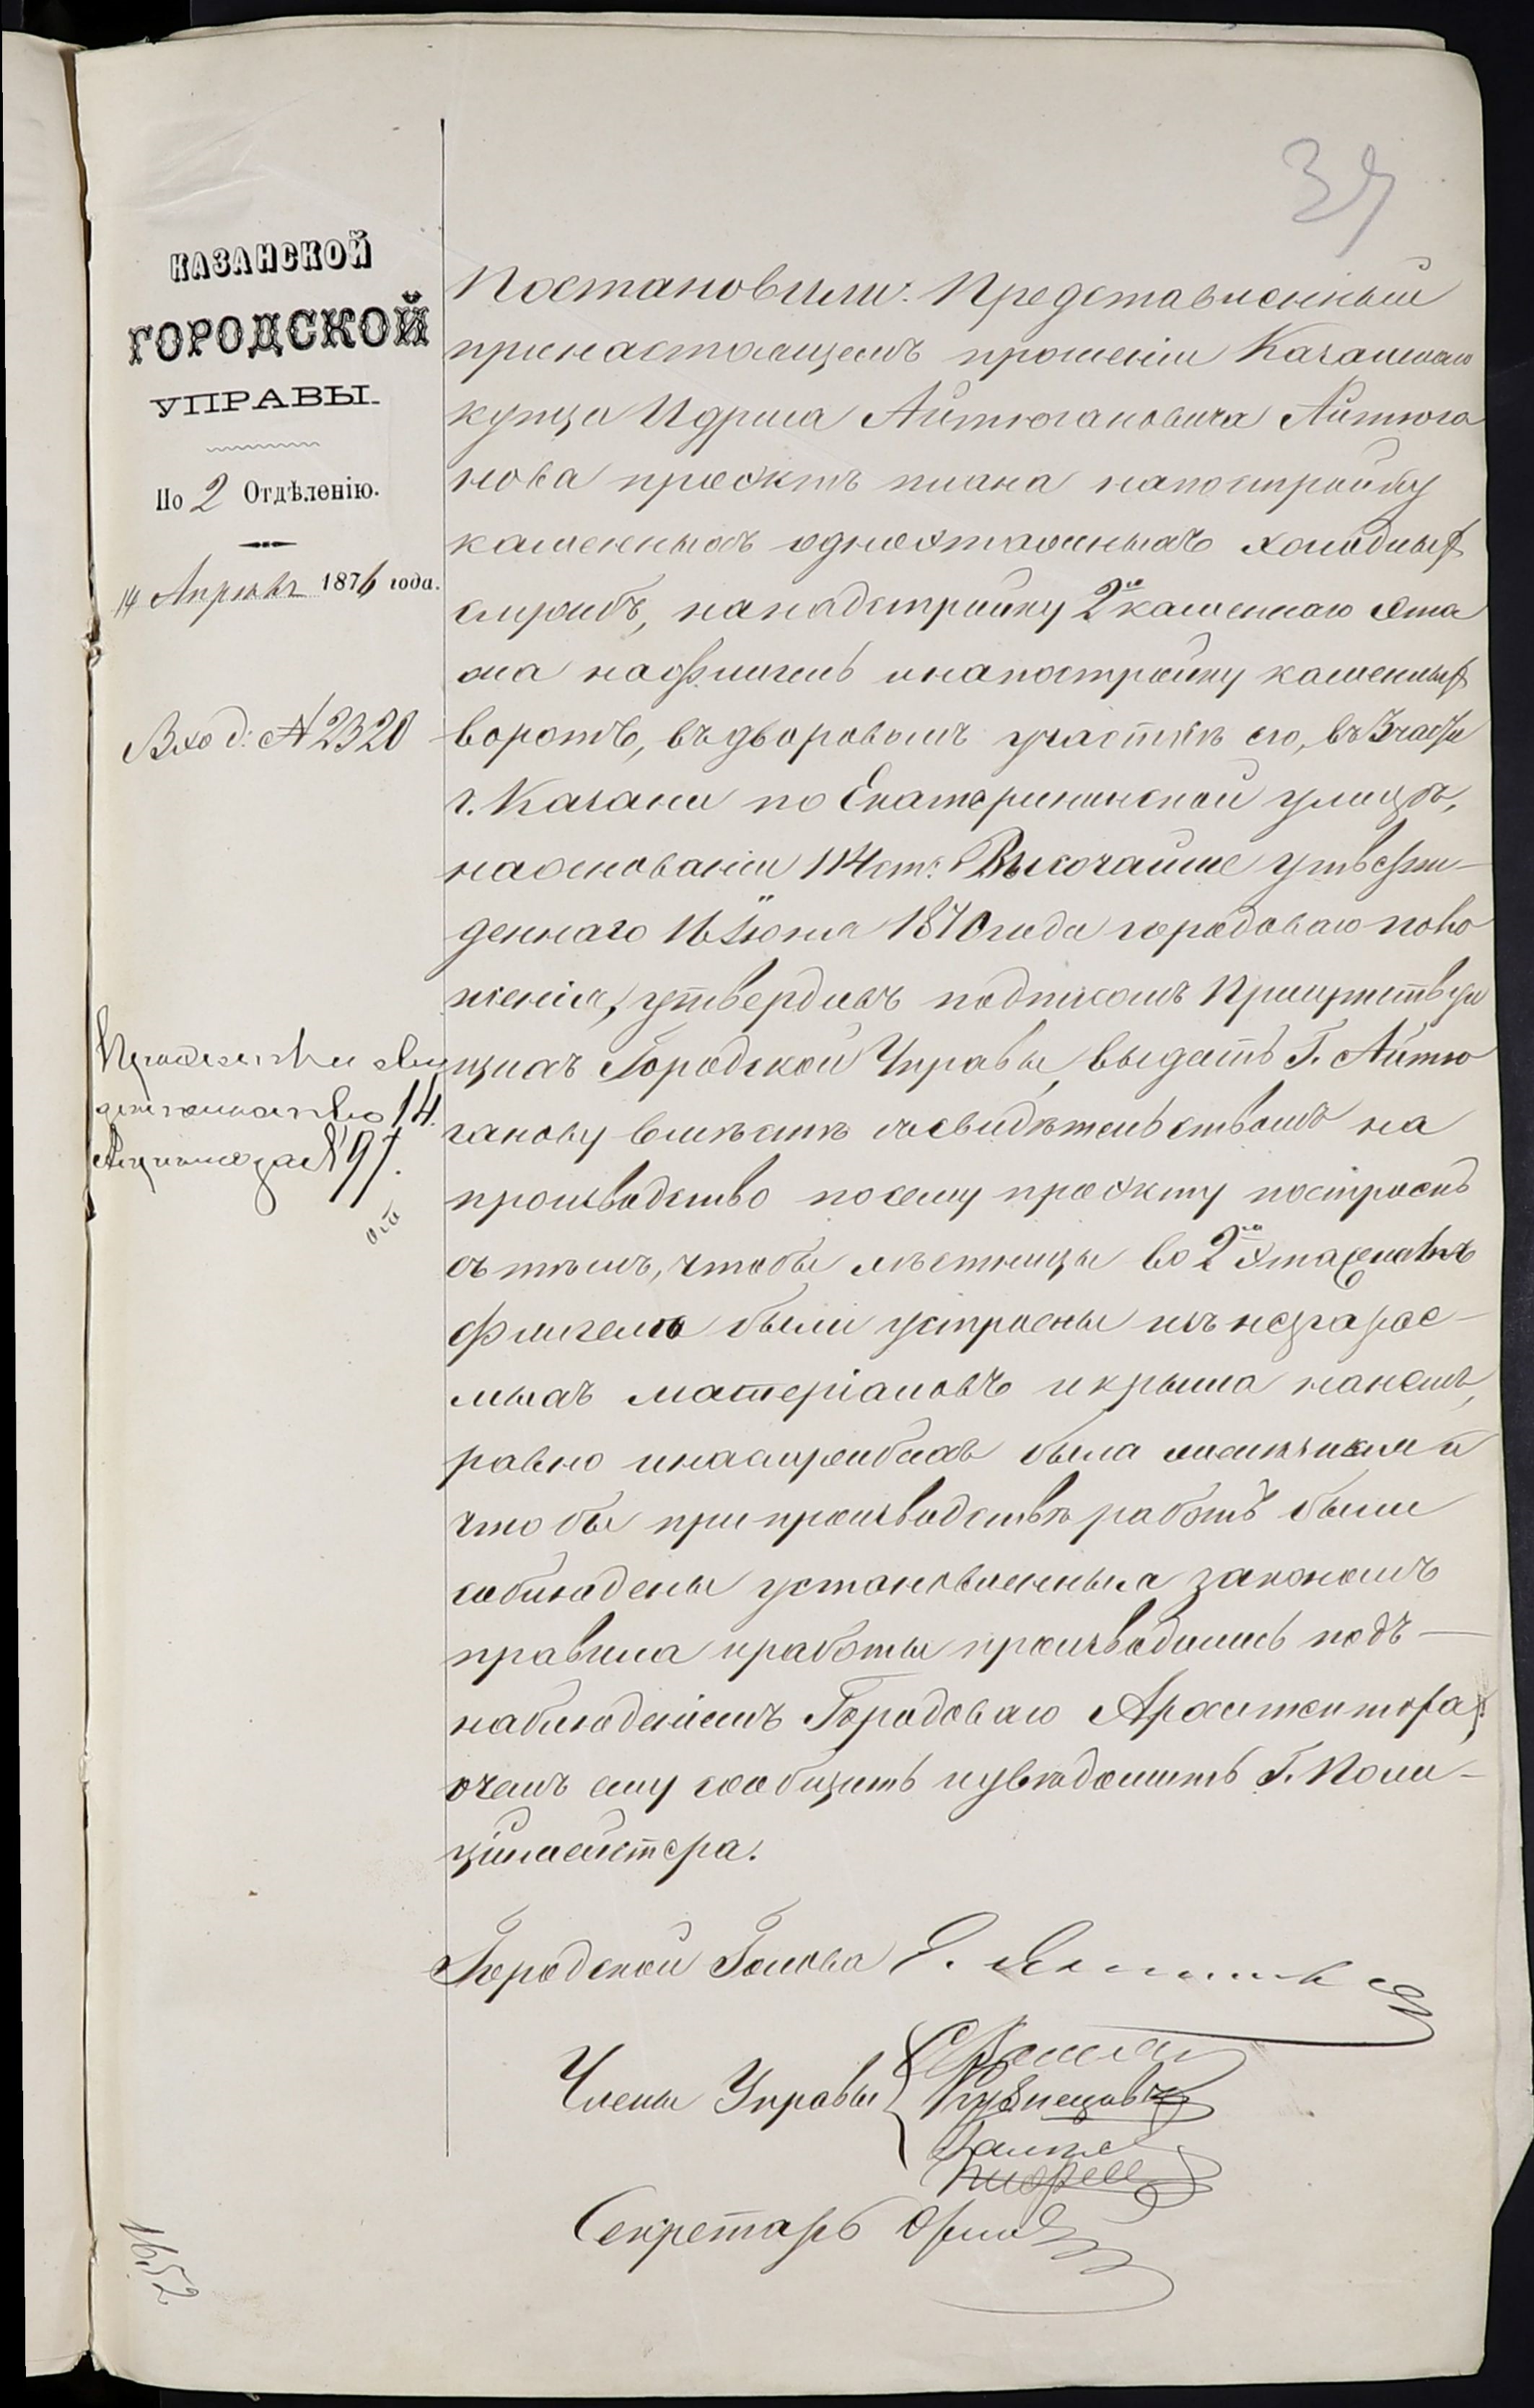 37
КАЗАНСКОЙ
ГОРОДСКОЙ
УПРАВЫ.
По 2 Отдѣленію.
14 Апрѣля 1876 года.
Вход: № 2320
14.
№ 97.
Постановили: Представленный
принастоящемъ прошеніи Казанскаго
купца Идриса Айтюгановича Айтюга
нова проэктъ плана напостройку
каменныхъ одноэтажныхъ холодныхъ
службъ, нанадстройку 2го каменнаго эта
жа нафлигель инапостройку каменныхъ
воротъ, въдворовомъ участкѣ его, въ 3 части
г. Казани по Екатерининской улицѣ,
наоснованіи 114 ст: Высочайше утверж-
деннаго 16 Іюня 1870 года городоваго поло
женія, утвердивъ подписомъ Присутствую
щихъ Городской Управы, выдать Г. Айтю
ганову вмѣстѣ исвидѣтельствомъ на
производство посему проэкту построекъ
съ тѣмъ, чтобы лѣстницы во 2й этажъ
флигеля были устроены изъ несгарае-
мыхъ матеріаловъ икрыша нанемъ,
равно инаслужбахъ была
что бы припроизводствѣ работъ были
соблюдены установленныя закономъ
правила иработы производились подъ
наблюденіемъ Городоваго Архитектора,
очемъ ему сообщить иувѣдомить Г. Поли-
ціймейстера.
Городской Голова
Члены Управы
Кузнецовъ
Секретарь
1652